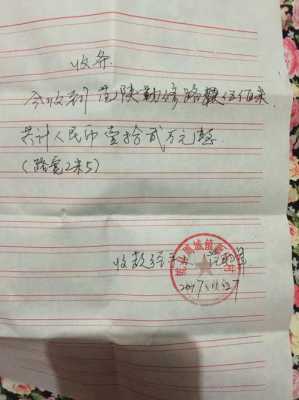 收条
今收到 范陕勤修路款伍佰米
共计人民币壹拾贰万元整
(路宽2米5)
收款经手
2017.11.27